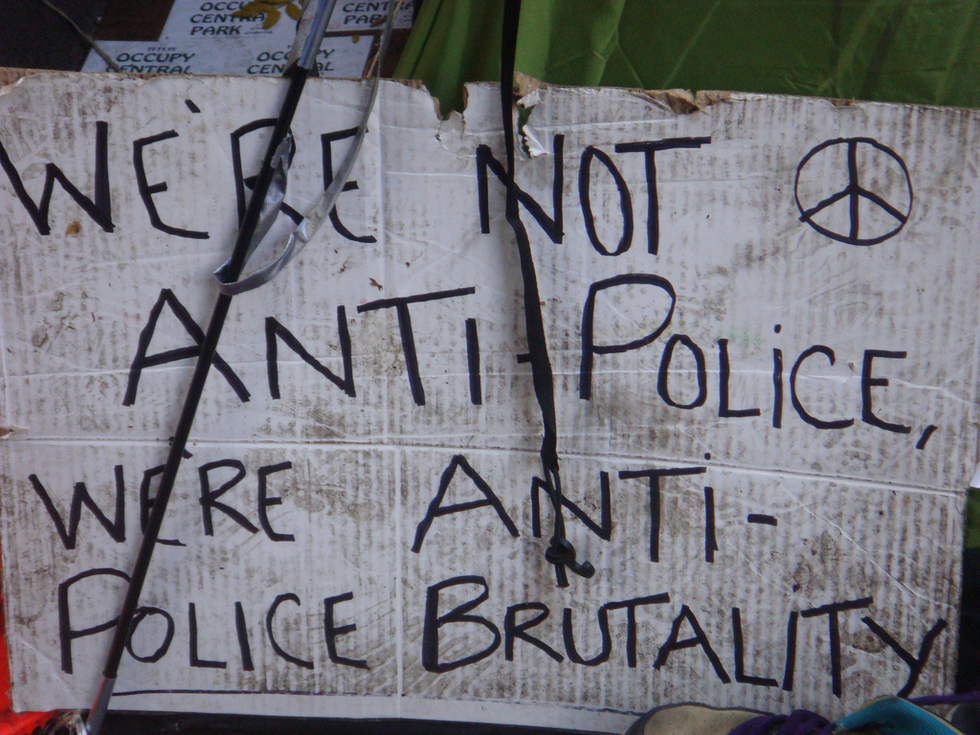 OCCUPY
CENTRAL
PARK
CENTRAL
PARK
OCCUPY
CENTRAL
WE'RE NOT
ANTI-POLICE,
WE'RE ANTI-
POLICE BRUTALITY